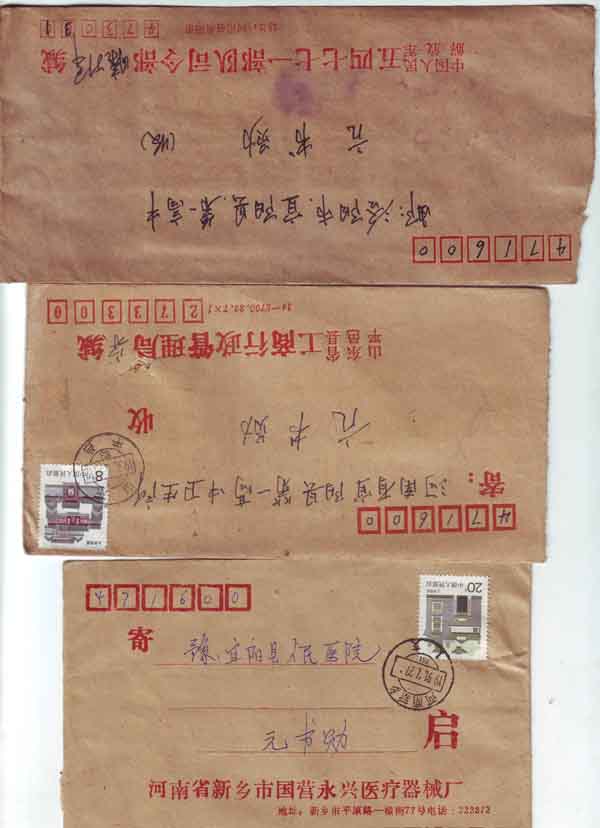 471600
邮:洛阳市宜阳县第一高中
亢书勋 (收)
中国人民解放军 五四七七一部队司令部 缄
471600
寄:河南省宜阳县第一高中卫生所
亢书勋
收
山东省平邑县 工商行政管理局 缄
273300
8分 中国人民邮政
471600
20分 中国人民邮政
寄 豫.宜阳县人民医院
亢书勋
启
河南省新乡市国营永兴医疗器械厂
地址:新乡市平原路一横街77号电话: